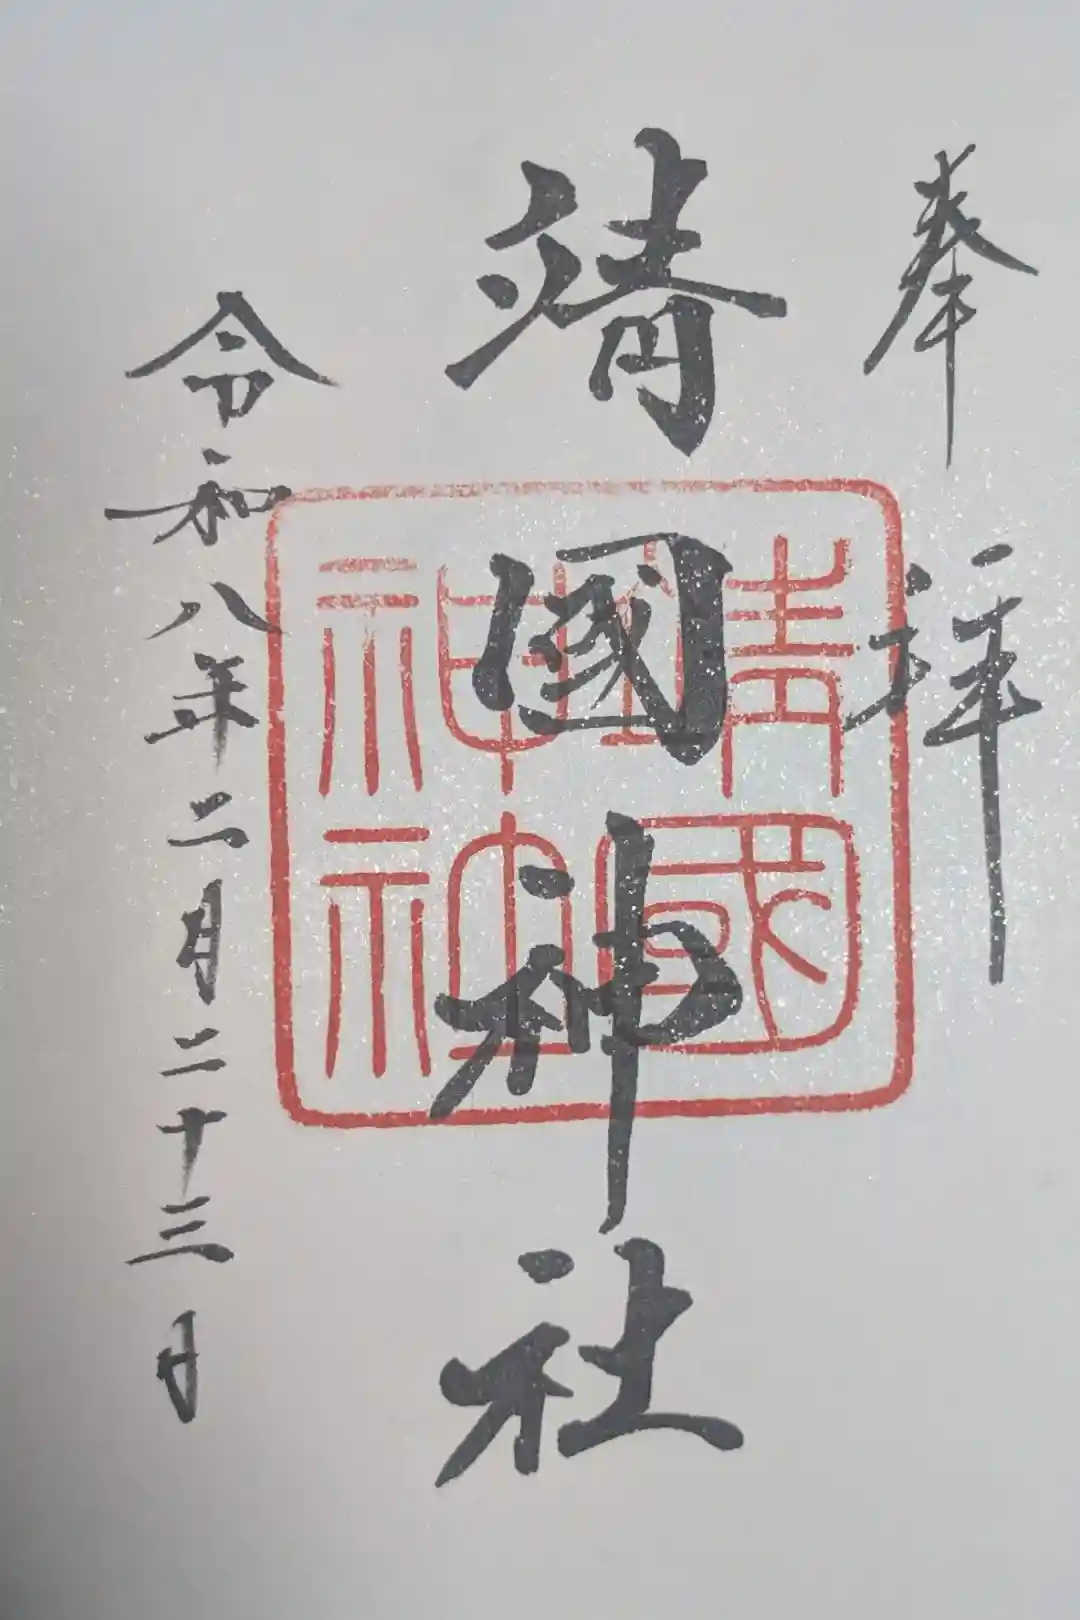 奉拝
靖國神社
靖國
神社
令和八年二月二十三日